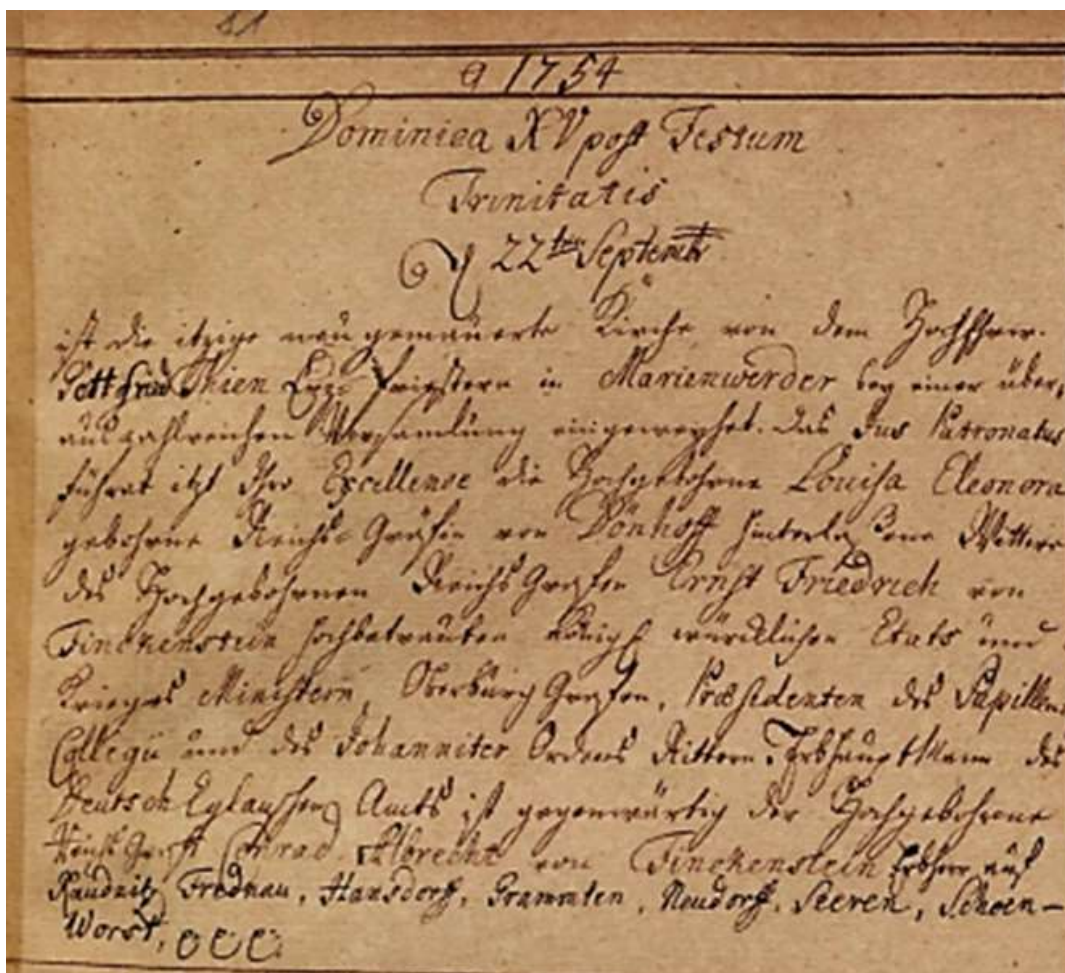 81
a 1754
Dominica XV post Festum
Trinitatis
22ten Septembr
ist die itzige neugemauerte Kirche von dem HochEhrw.
Gottfried Thien Ertz-Priestern in Marienwerder bey einer über-
aus zahlreichen Versamlung eingeweyhet. Das Jus Patronatus
führet itzt Ihro Excellence die Hochgebohrne Louisa Eleonora
gebohrne Reichs-Gräfin von Dönhoff hinterlassene Wittwe
des Hochgebohrnen ReichsGrafen Ernst Friedrich von
Finckenstein hochbetrauten Königl würcklichen Etats und
Krieges Ministern, OberburgGrafen, Præsidenten des Pupillen
Collegii und des Johanniter Ordens Rittern. ErbhauptMann des
Deutsch Eylauschen Amts ist gegenwärtig der Hochgebohrne
Reichs Graff Conrad Albrecht von Finckenstein Erbherr auf
Raudnitz Frednau, Hansdorff, Grammten, Neudorff, Seeren, Schoen-
Worst,